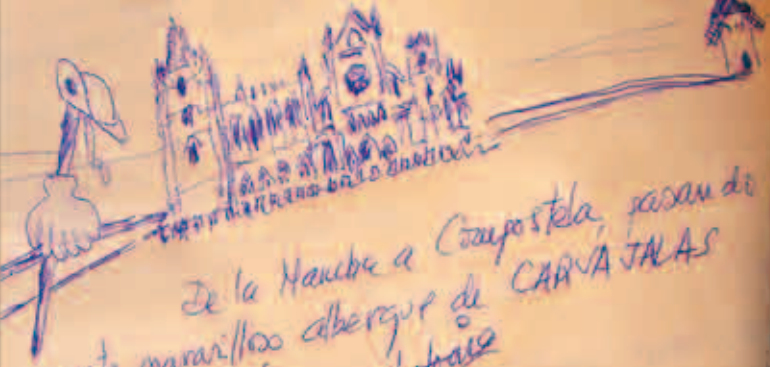 De la Mancha a Compostela, pasando
maravilloso albergue de CARVAJALAS